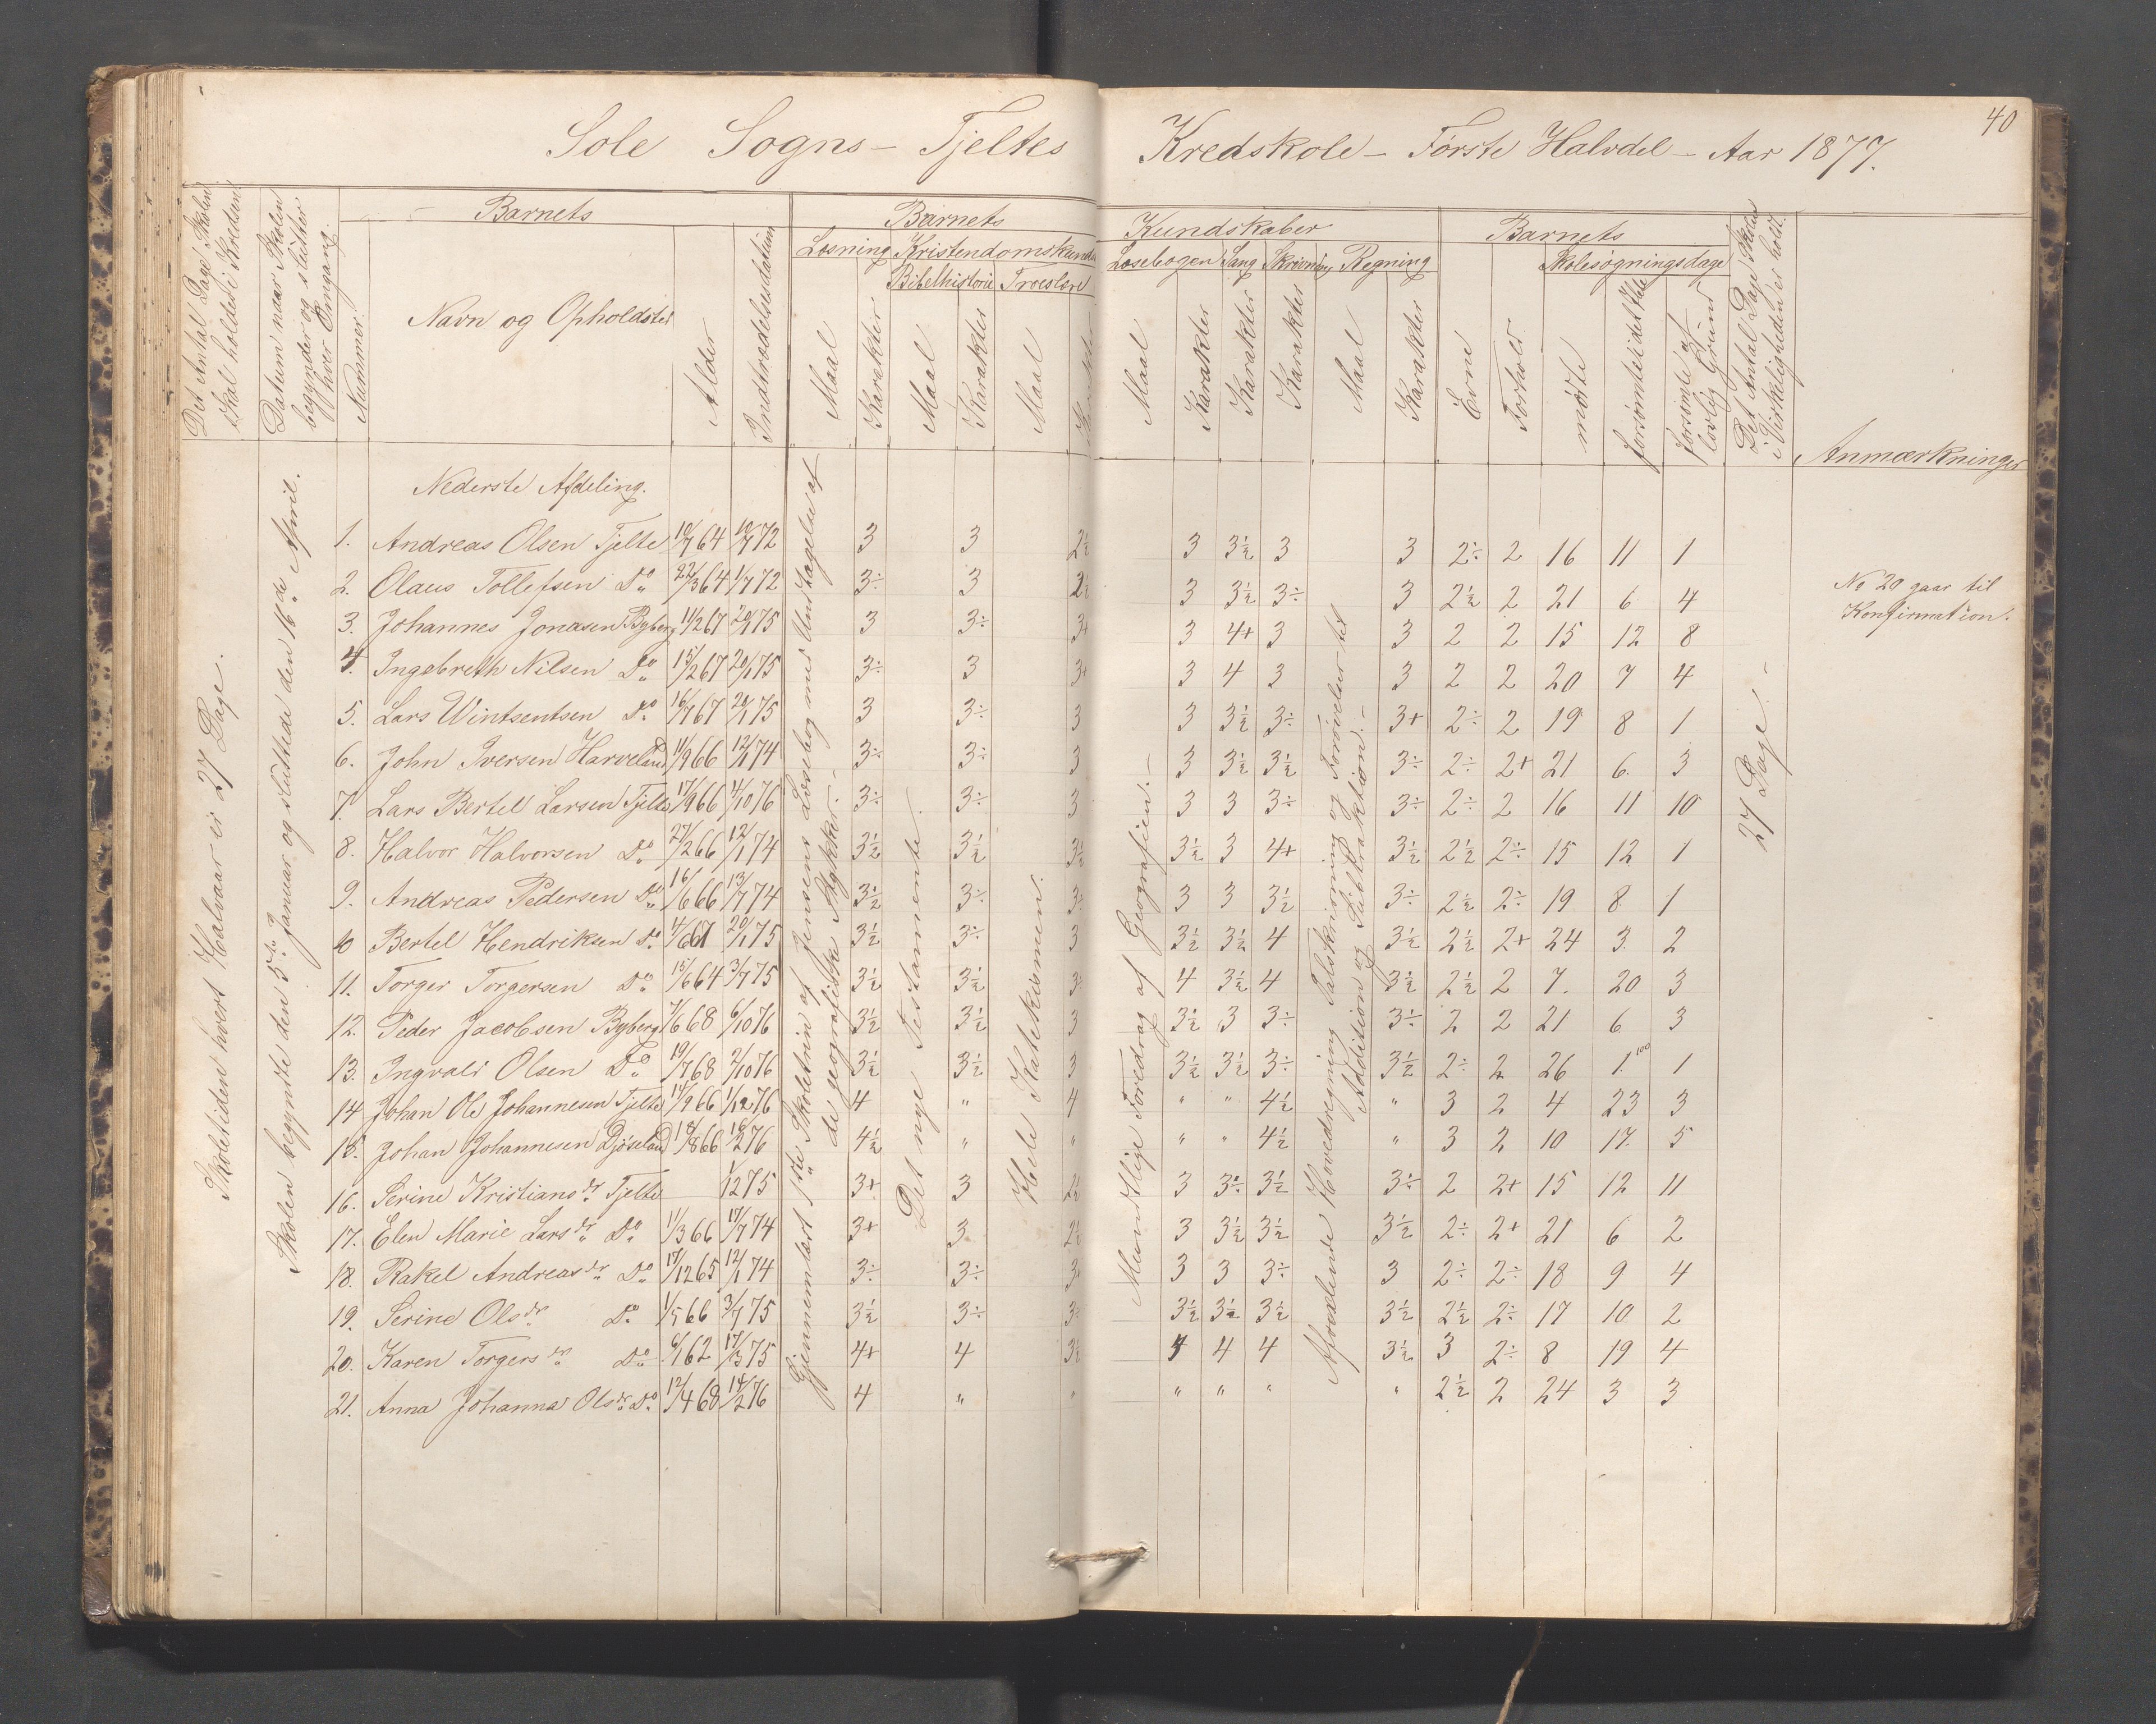 40
Sole Sogns - Tjeltes Kredskole - Første Halvdel - Aar 1877.
Det Antal Dage Skolen skal holdes i Kredsen
Datum naar Skolen begynder og slutter hver Omgang.
Nummer.
Barnets
Navn og Opholdsted
Alder
Indtrædelsesdatum
Barnets Kundskaber
Læsning Kristendomskundskab
Bibelhistorie Troeslære
Læsebogen Sang Skrivning Regning
Maal Karakter Maal Karakter Maal Karakter
Maal Karakter Karakter Karakter Maal Karakter
Barnets
Evne Forhold
Skolesøgningsdage
mødte forsømte i det Hele forsømte af lovlig Grund
Det Antal Dage Skolen i Virkeligheden er holdt.
Anmærkninger
Skoletiden hvert Halvaar er 27 Dage.
Skolen begyndte den 5te Januar og sluttede den 16de April.
Gjennemlæst 1ste Skoletrin af Jensens Læsebog med Undtagelse af de geografiske Stykker.
Det nye Testamente.
Hele Katekismen.
Mundtlige Foredrag af Geografien.
Afvexlende Hovedregning Talskrivning og Forøvelser til Addition og Subtraktion.
27 Dage.
Nederste Afdeling.
1. Andreas Olsen Tjelte 10/7 64 10/7 72 3 3 2½ 3 3½ 3 3 2÷ 2 16 11 1
2. Olaus Tollefsen Do 22/3 64 1/7 72 3÷ 3 2½ 3 3½ 3÷ 3 2½ 2 21 6 4
No 20 gaar til
Konfirmation.
3. Johannes Jonasen Byberg 11/2 67 20/1 75 3 3÷ 3+ 3 4+ 3 3 2 2 15 12 8
4. Ingebreth Nilsen Do 15/2 67 20/1 75 3÷ 3 3+ 3 4 3 3 2 2 20 7 4
5. Lars Wintsentsen Do 16/7 67 20/1 75 3 3÷ 3 3 3½ 3÷ 3+ 2÷ 2 19 8 1
6. John Iversen Harveland 11/9 66 12/1 74 3÷ 3÷ 3 3 3½ 3½ 3÷ 2÷ 2+ 21 6 3
7. Lars Bertel Larsen Tjelte 17/9 66 4/10 76 3÷ 3÷ 3 3 3 3÷ 3÷ 2÷ 2 16 11 10
8. Halvor Halvorsen Do 27/2 66 12/1 74 3½ 3½ 3½ 3½ 3 4+ 3½ 2½ 2÷ 15 12 1
9. Andreas Pedersen Do 16/6 66 13/7 74 3½ 3÷ 3÷ 3 3 3½ 3÷ 2½ 2÷ 19 8 1
10 Bertel Hendriksen Do 14/6 67 20/1 75 3½ 3÷ 3 3½ 3½ 4 3½ 2½ 2+ 24 3 2
11. Torger Torgersen Do 15/6 64 3/7 75 3½ 3½ 3÷ 4 3½ 4 3½ 2½ 2 7 20 3
12. Peder Jacobsen Byberg 7/6 68 6/10 76 3½ 3½ 3 3½ 3 3÷ 3÷ 2 2 21 6 3
13. Ingvald Olsen Do 19/7 68 2/10 76 3½ 3½ 3 3½ 3½ 3÷ 3½ 2÷ 2 26 1 1
14 Johan Ole Johannesen Tjelte 14/9 66 1/12 76 4 " 4 " " 4½ " 3 2 4 23 3
15. Johan Johannesen Djøseland 18/8 66 16/2 76 4½ " " " " 4½ " 3 2 10 17 5
16. Serine Kristiansdr Tjelte 1/12 75 3+ 3 2½ 3 3÷ 3½ 3÷ 2 2+ 15 12 11
17. Elen Marie Larsdr Do 11/3 66 17/7 74 3+ 3 2½ 3 3½ 3½ 3½ 2÷ 2+ 21 6 2
18. Rakel Andreasdr Do 17/12 65 12/1 74 3÷ 3÷ 3+ 3 3 3÷ 3 2÷ 2÷ 18 9 4
19. Serine Olsdr Do 1/5 66 3/7 75 3½ 3÷ 3÷ 3½ 3½ 3½ 3½ 2½ 2÷ 17 10 2
20. Karen Torgersdr Do 6/1 62 17/3 75 4+ 4 3½ 4 4 4 3½ 3 2÷ 8 19 4
21. Anna Johanna Olsdr Do 12/4 68 14/2 76 4 " " " " " " 2½ 2 24 3 3